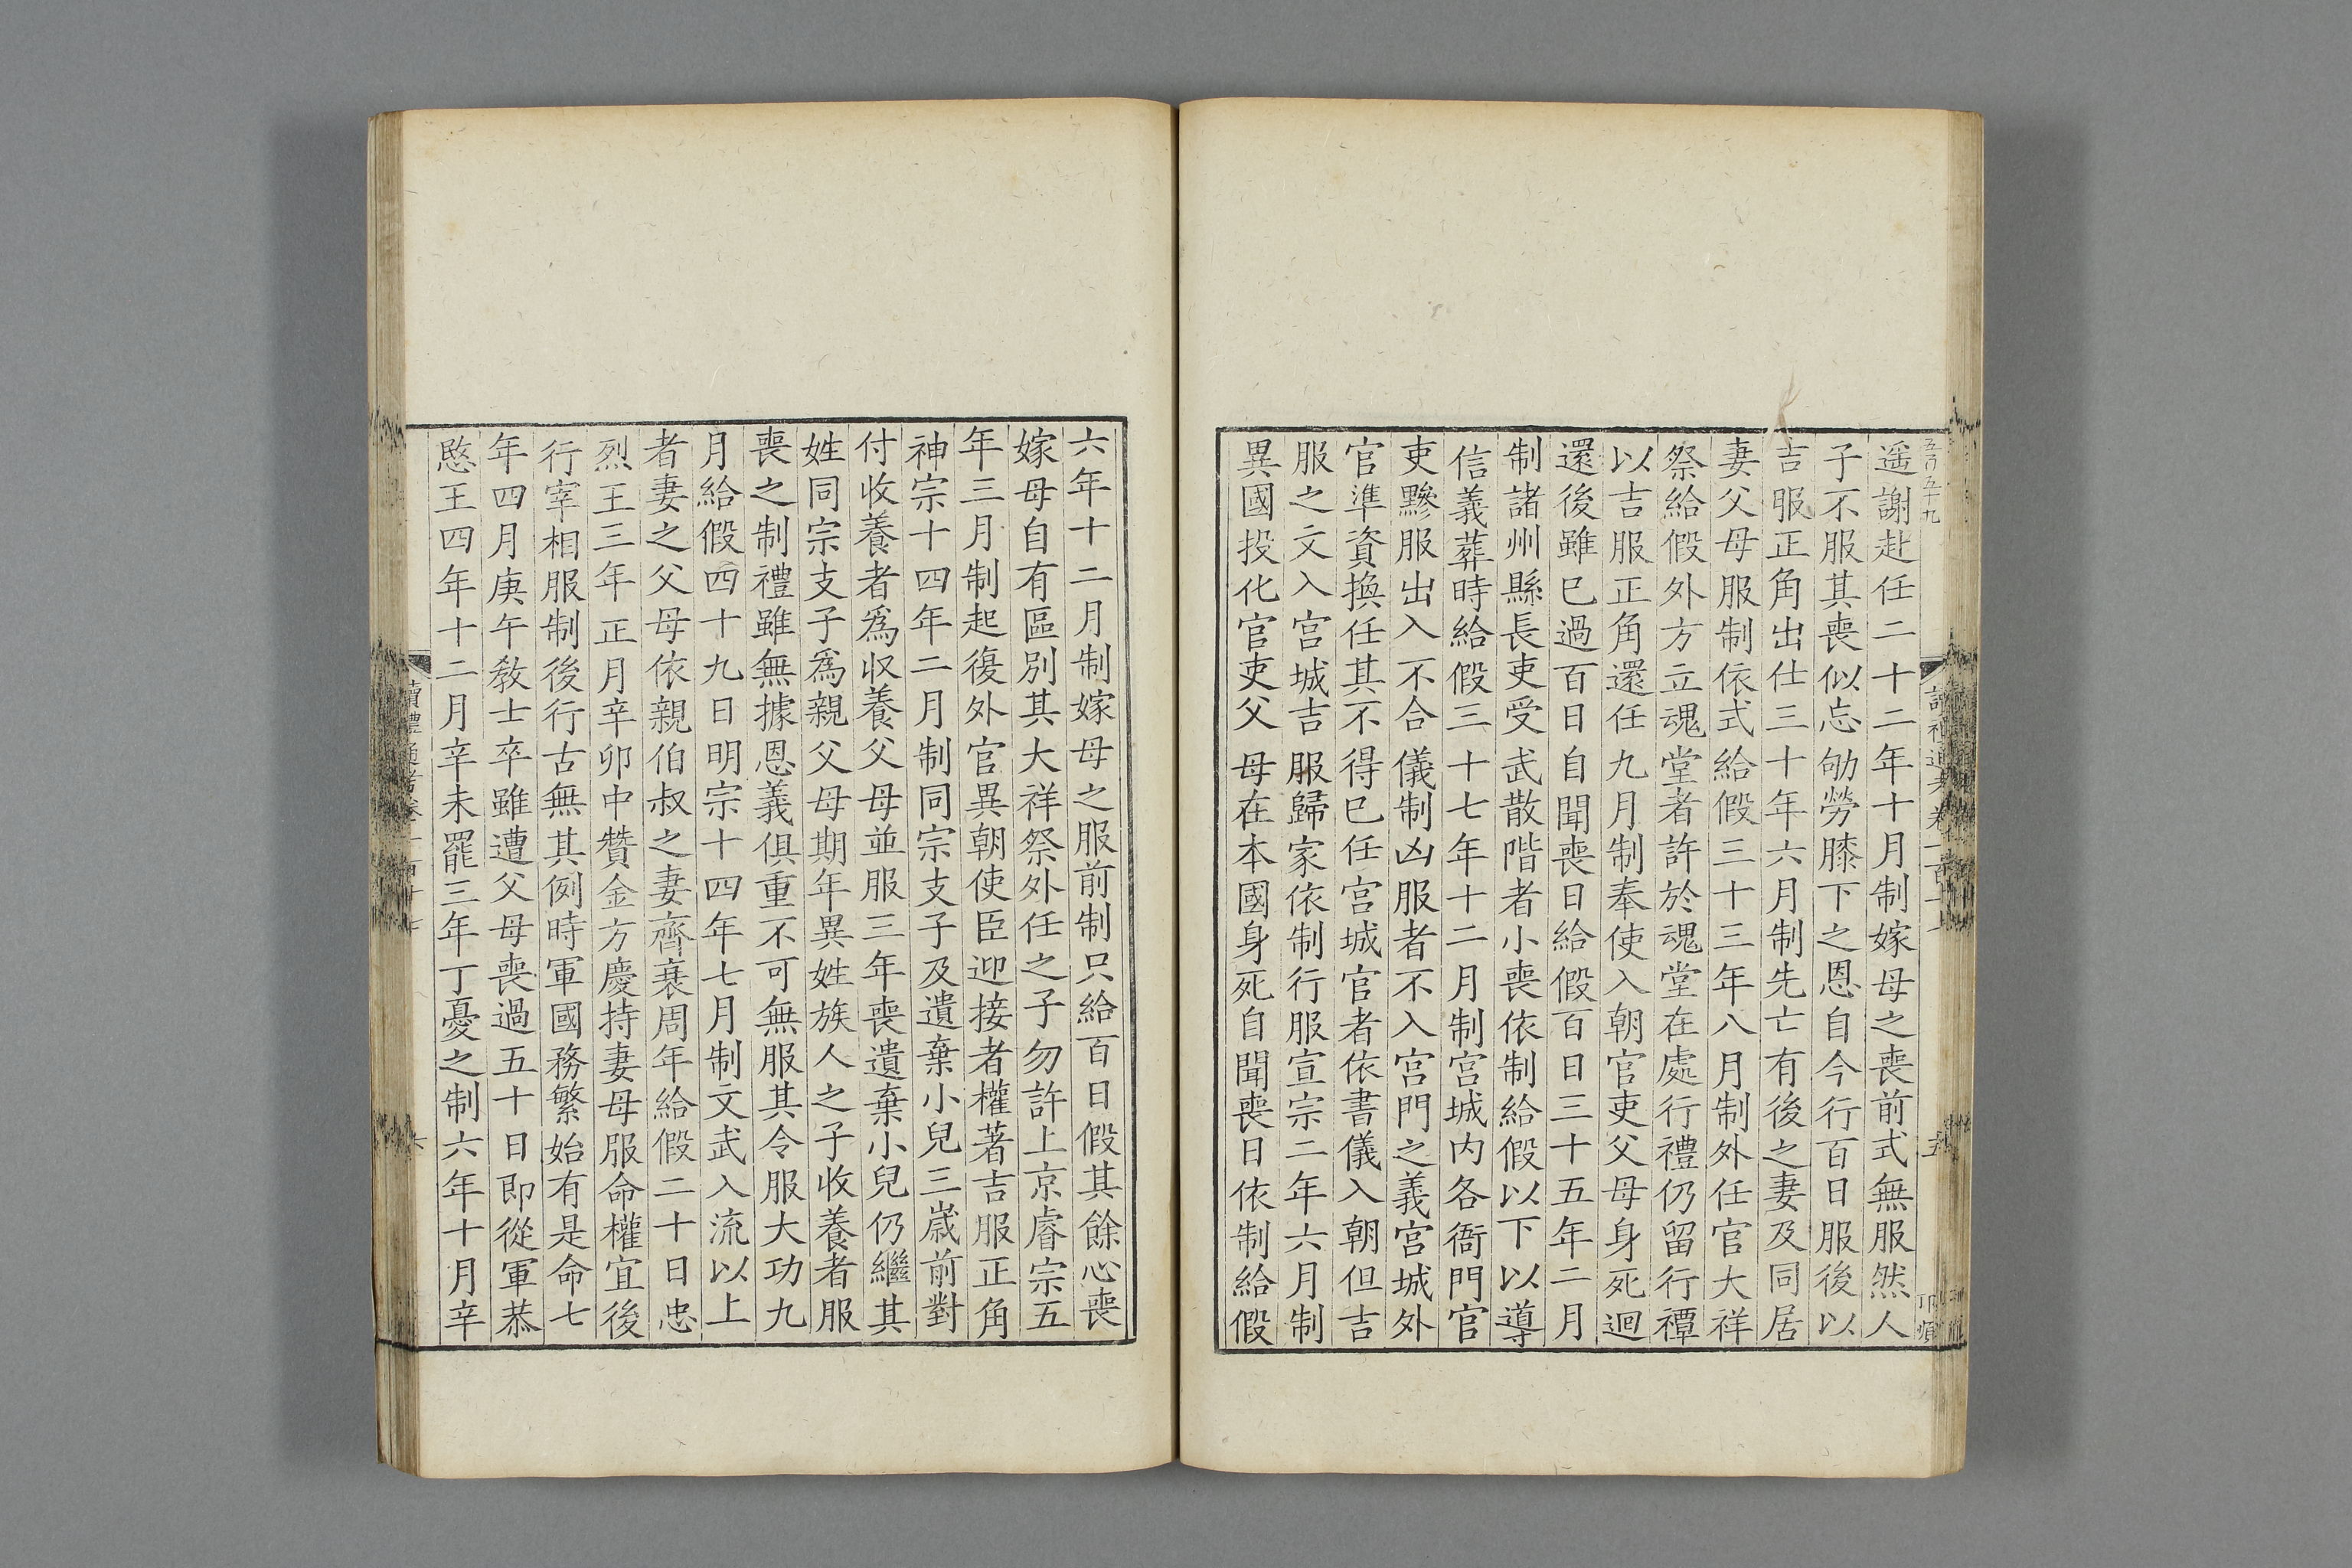 五百五十九
遥謝赴任二十二年十月制嫁母之喪前式無服然人
子不服其喪似忘劬勞膝下之恩自今行百日服後以
吉服正角出仕三十年六月制先亡有後之妻及同居
妻父母服制依式給假三十三年八月制外任官大祥
祭給假外方立魂堂者許於魂堂在處行禮仍留行禫
以吉服正角還任九月制奉使入朝官吏父母身死迴
還後雖巳過百日自聞喪日給假百日三十五年二月
制諸州縣長吏受武散階者小喪依制給假以下以導
信義葬時給假三十七年十二月制宮城内各衙門官
吏黲服出入不合儀制凶服者不入宮門之義宮城外
官準資換任其不得巳任宮城官者依書儀入朝但吉
服之文入宮城吉服歸家依制行服宣宗二年六月制
異國投化官吏父母在本國身死自聞喪日依制給假
六年十二月制嫁母之服前制只給百日假其餘心喪
嫁母自有區別其大祥祭外任之子勿許上京睿宗五
年三月制起復外官異朝使臣迎接者權著吉服正角
神宗十四年二月制同宗支子及遺棄小兒三歲前對
付收養者爲収養父母並服三年喪遺棄小兒仍繼其
姓同宗支子爲親父母期年異姓族人之子收養者服
喪之制禮雖無據恩義俱重不可無服其令服大功九
月給假四十九日明宗十四年七月制文武入流以上
者妻之父母依親伯叔之妻齊衰周年給假二十日忠
烈王三年正月辛卯中贊金方慶持妻母服命權宜後
行宰相服制後行古無其例時軍國務繁始有是命七
年四月庚午敎士卒雖遭父母喪過五十日即從軍恭
愍王四年十二月辛未罷三年丁憂之制六年十月辛
讀禮通考卷一百十七
六